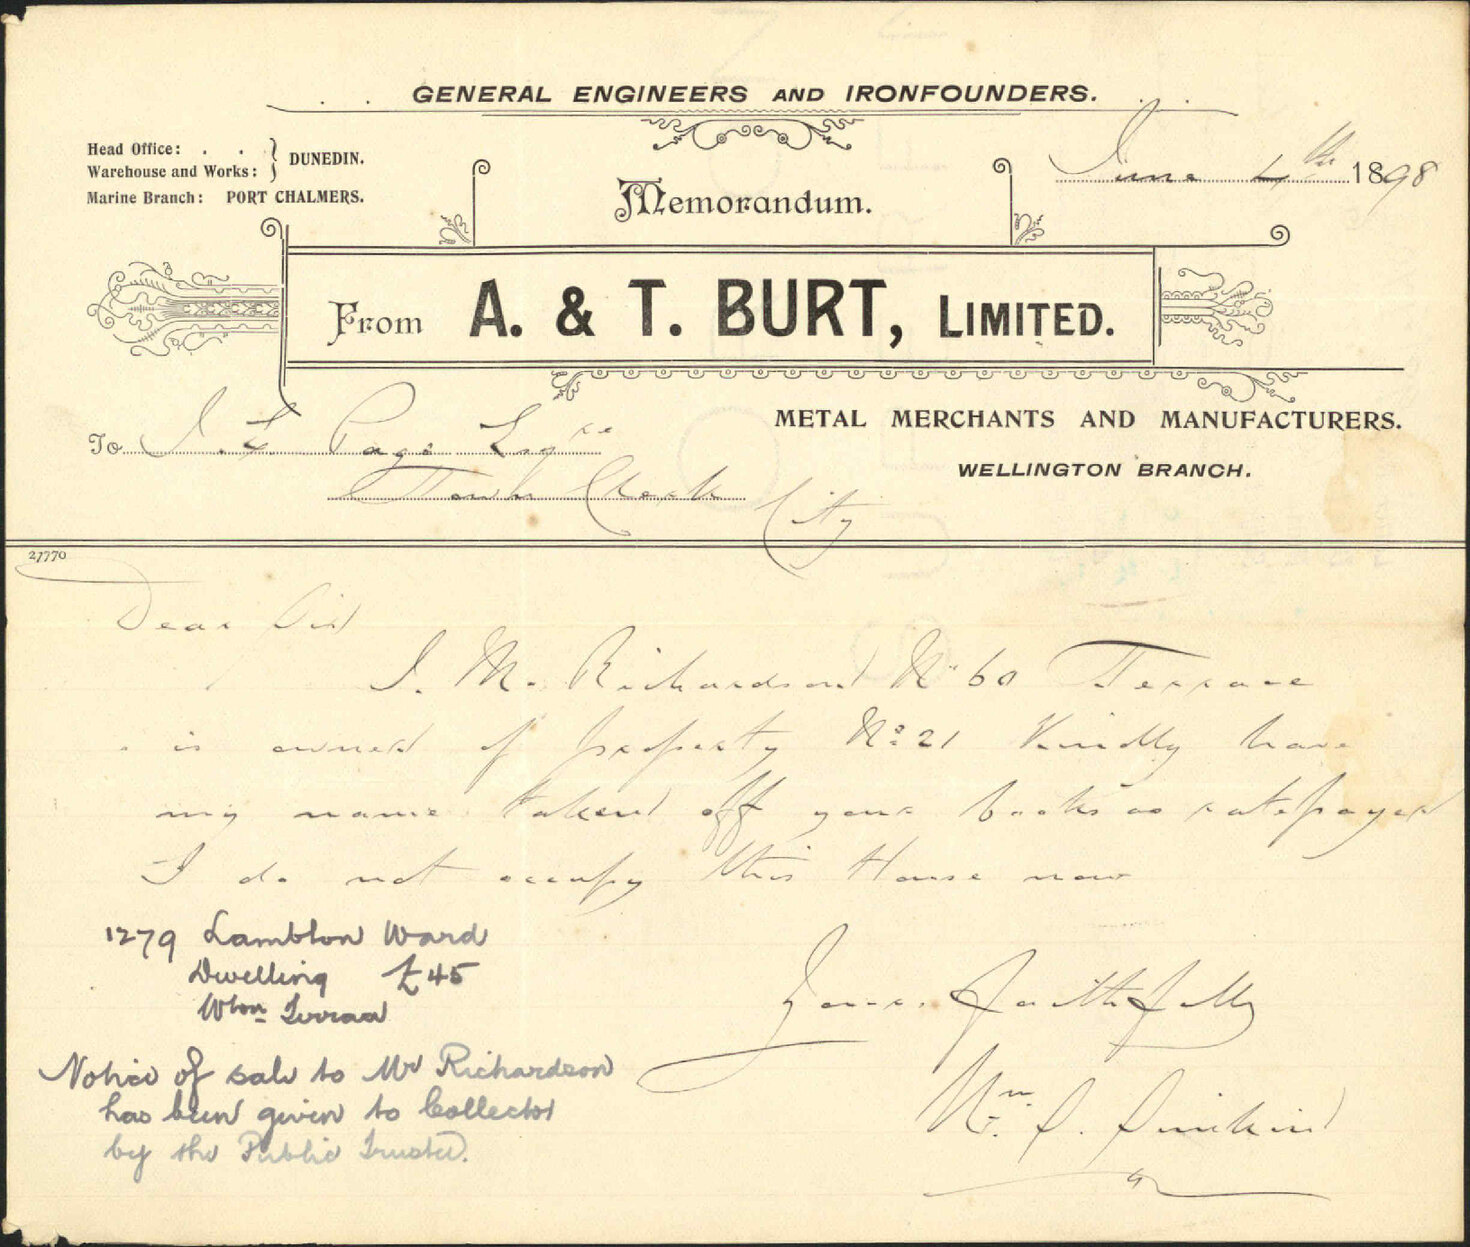 GENERAL ENGINEERS AND IRONFOUNDERS.
Head Office: . . } DUNEDIN.
Warehouse and Works:
Marine Branch: PORT CHALMERS.
June 4th 1898
Memorandum.
From A. & T. BURT, LIMITED.
METAL MERCHANTS AND MANUFACTURERS.
WELLINGTON BRANCH.
To J. L. Page Esqre
Town Clerk City
27770
Dear Sir
J. M. Richardson No 60 Terrace
is owner of property No 21 Kindly have
my name taken off your books as ratepayer
I do not occupy this House now
Yours Faithfully
Wm. J.
1279 Lambton Ward
Dwelling £45
Wton Terrace
Notice of sale to Mr Richardson
has been given to Collector
by the Public Trustee.